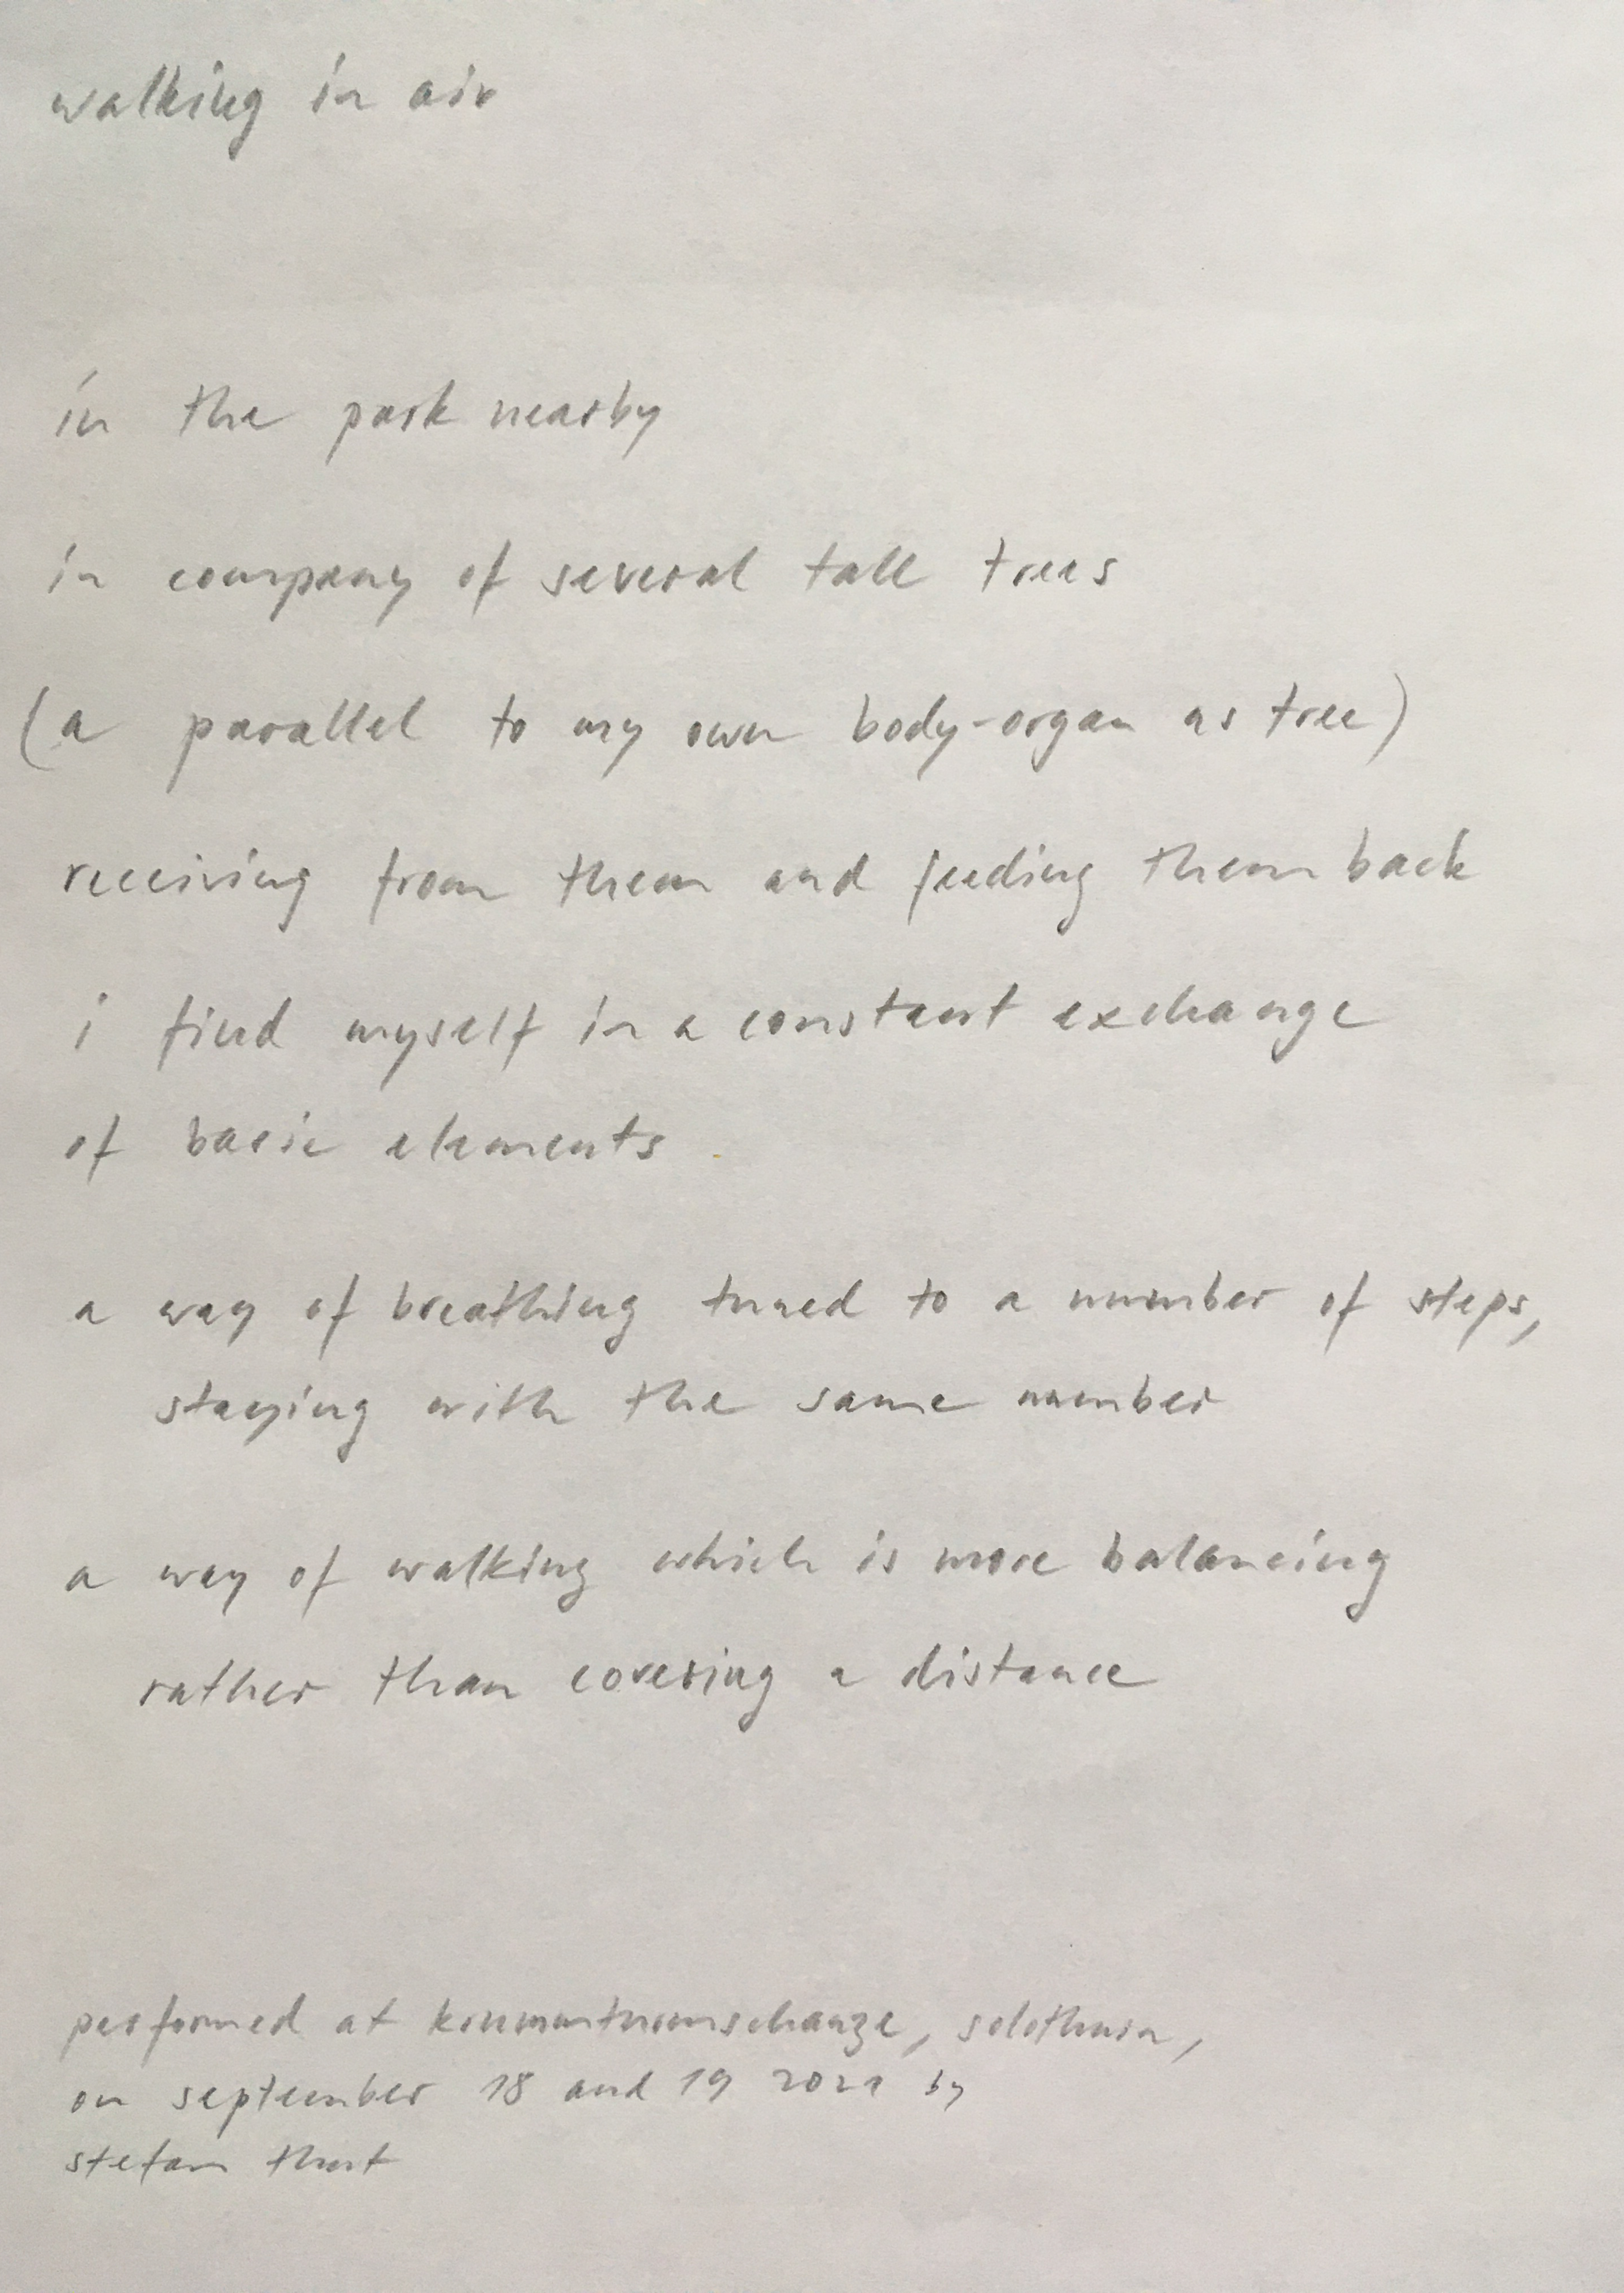 walking in air
in the park nearby
in company of several tall trees
(a parallel to my own body-organ as tree)
receiving from them and feeding them back
i find myself in a constant exchange
of basic elements
a way of breathing tuned to a number of steps,
staying with the same number
a way of walking which is more balancing
rather than covering a distance
performed at krummturmschanze, solothurn,
on september 18 and 19 2021 by
stefan thut